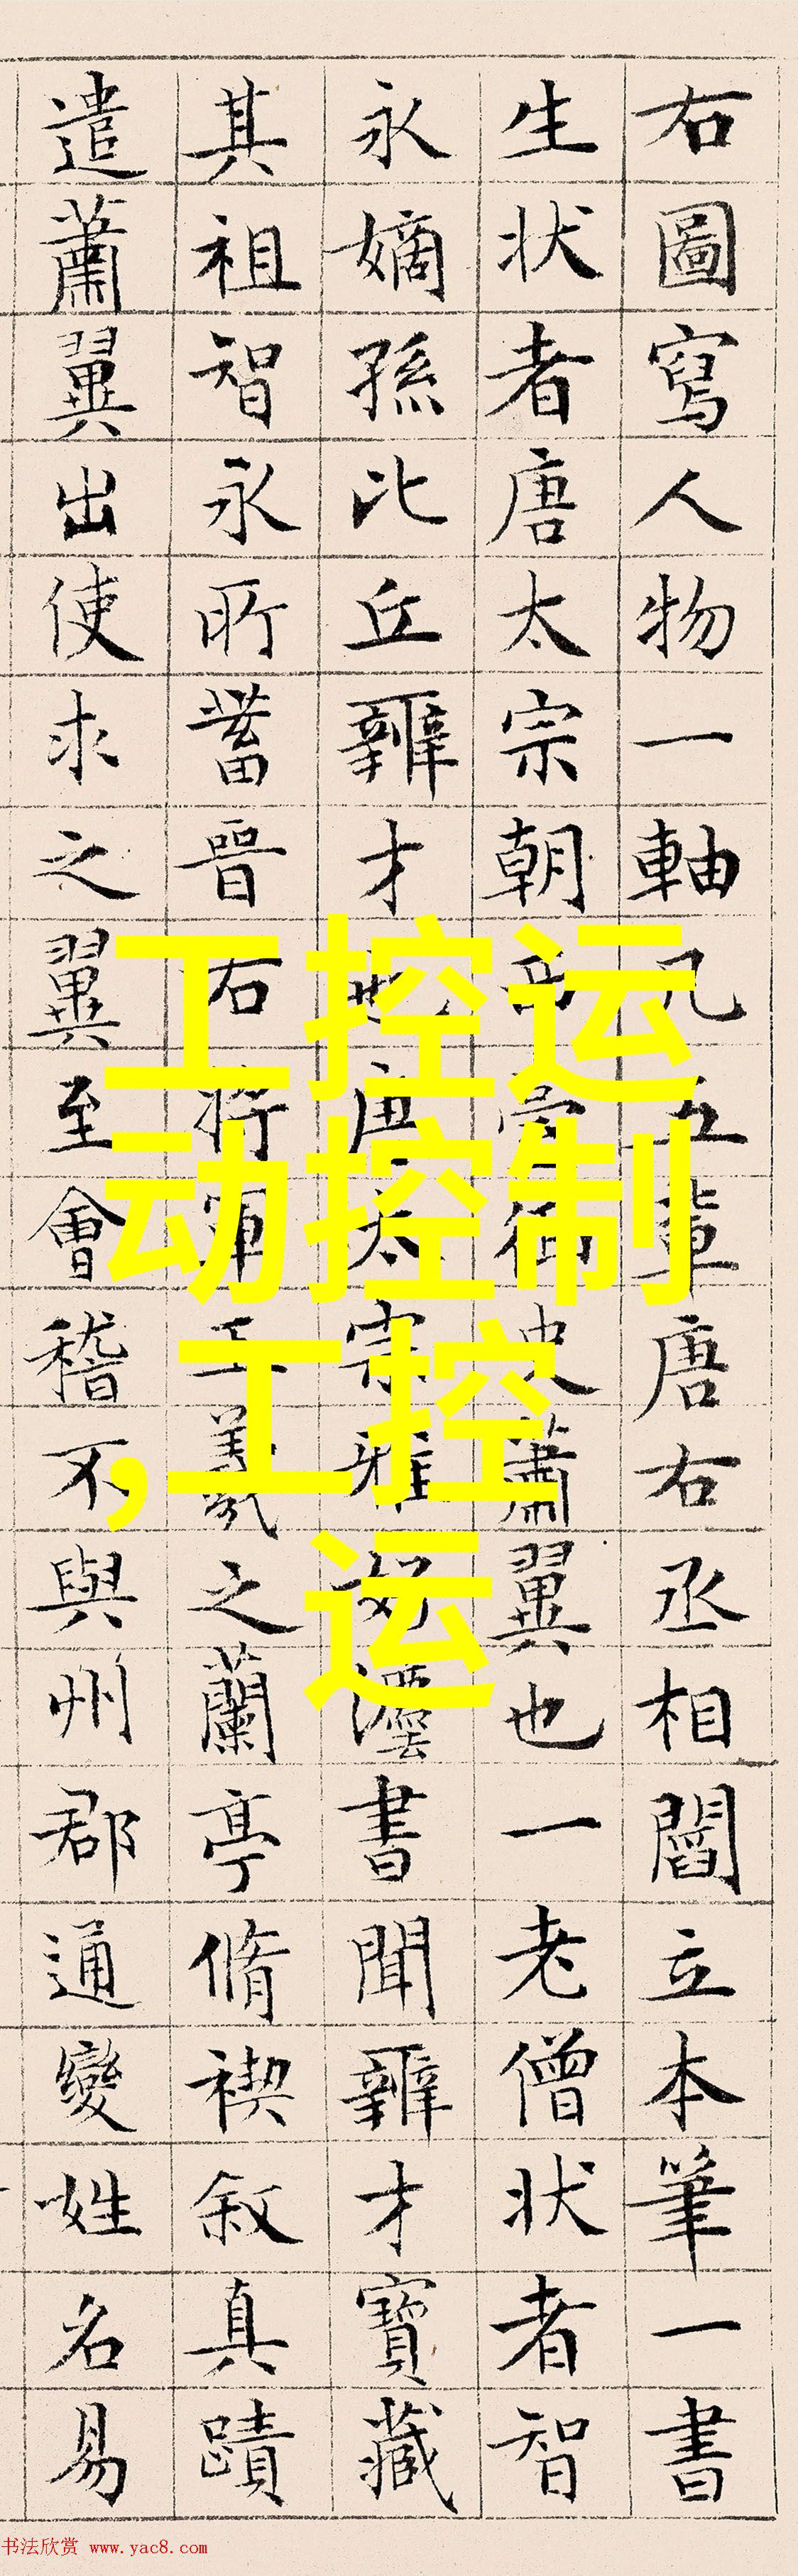 右圖寫人物一軸凡五輩唐右丞相閻立本筆一書
生状者唐太宗朝御史蕭翼也一老僧状者智
永嫡孫比丘辧才也唐太宗雅好灋書聞辧才寶藏
其祖智永所蓄晉右将軍王羲之蘭亭脩禊叙真蹟
遣蕭翼出使求之翼至會稽不與州郡通變姓名易
工控运
动控制
,工控
运
书法欣赏 www.yac8.com